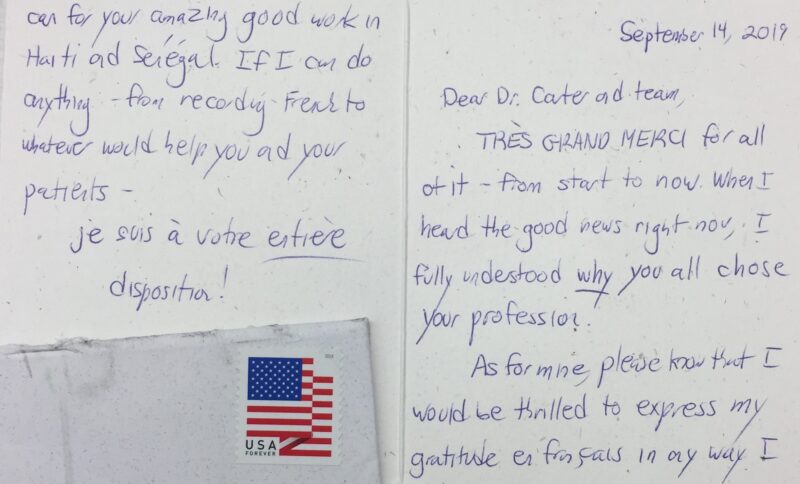 September 14, 2019
Dear Dr. Cater and team,
TRÈS GRAND MERCI for all
of it - from start to now. When I
heard the good news right now, I
fully understood why you all chose
your profession.
As for mine, please know that I
would be thrilled to express my
gratitude en français in any way I
can for your amazing good work in
Haiti and Sénégal. If I can do
anything - from recording French to
whatever would help you and your
patients -
je suis à votre entière
disposition!
USA
FOREVER